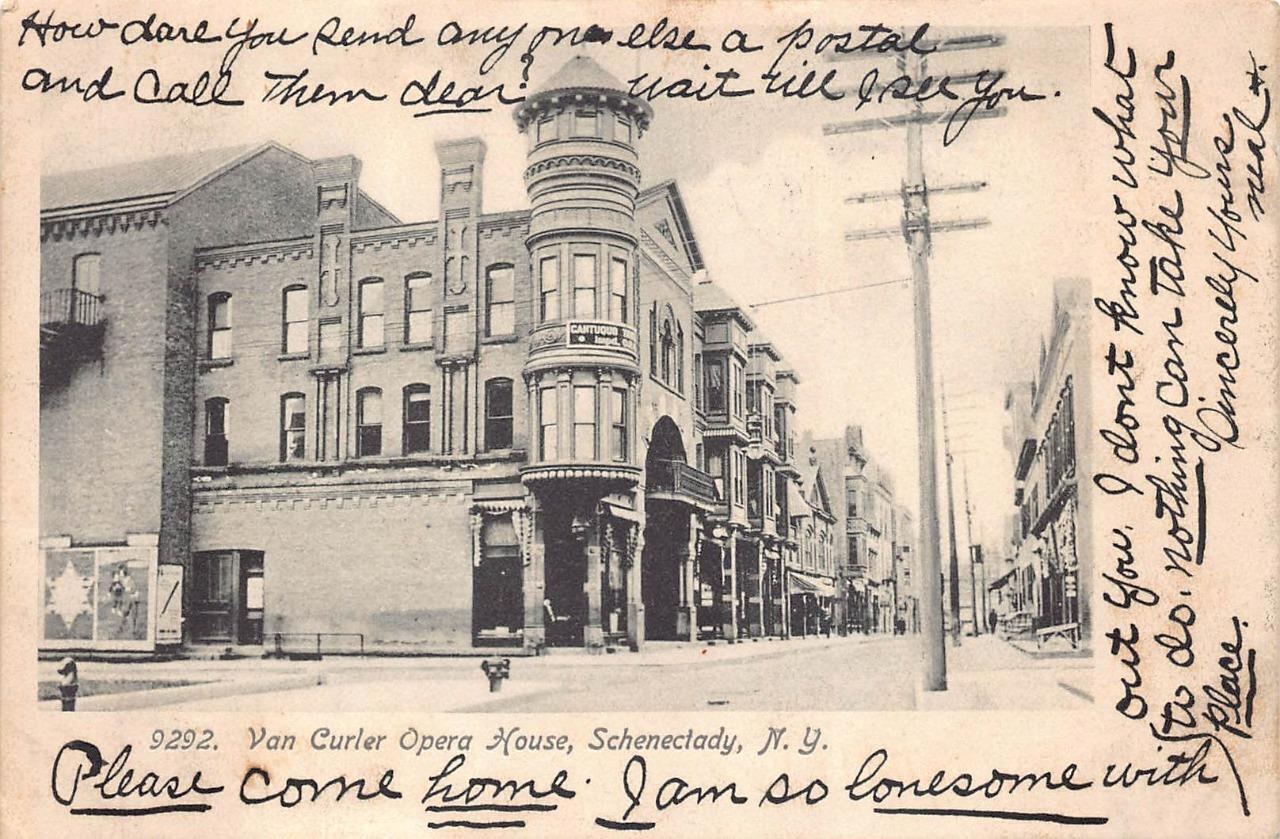 How dare you send any one else a postal
and call them dear? Wait till I see you.
CANTUOUO
9292. Van Curler Opera House, Schenectady, N. Y.
Please come home. I am so lonesome with
out you. I dont know what
to do. nothing can take your
place.
Sincerely yours